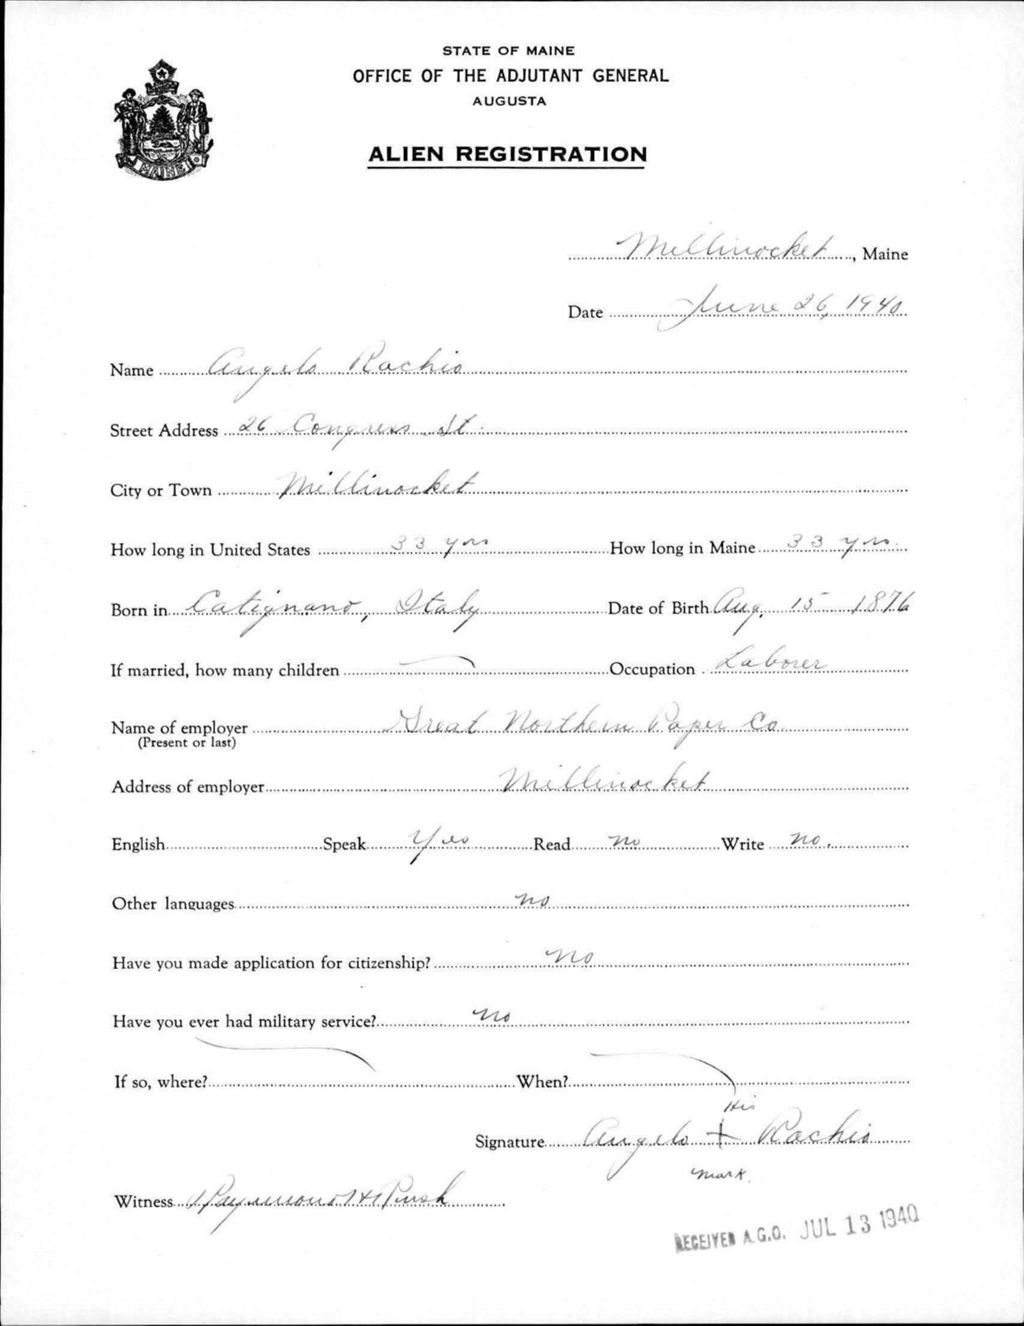 STATE OF MAINE
OFFICE OF THE ADJUTANT GENERAL
AUGUSTA
ALIEN REGISTRATION
MAINE
Millinocket, Maine
Date June 26, 1940
Name Angelo Rachio
Street Address 26 Congress St.
City or Town Millinocket
How long in United States 33 yrs How long in Maine 33 yrs.
Born in Catignano, Italy Date of Birth Aug. 15 1876
If married, how many children — Occupation Laborer
Name of employer Great Northern Paper Co
(Present or last)
Address of employer Millinocket
English Speak Yes Read no Write no.
Other languages no
Have you made application for citizenship? no
Have you ever had military service? no
If so, where? When?
His
Signature Angelo + Rachio
mark
Witness Raymond H Rush
RECEIVED A.G.O. JUL 13 1940